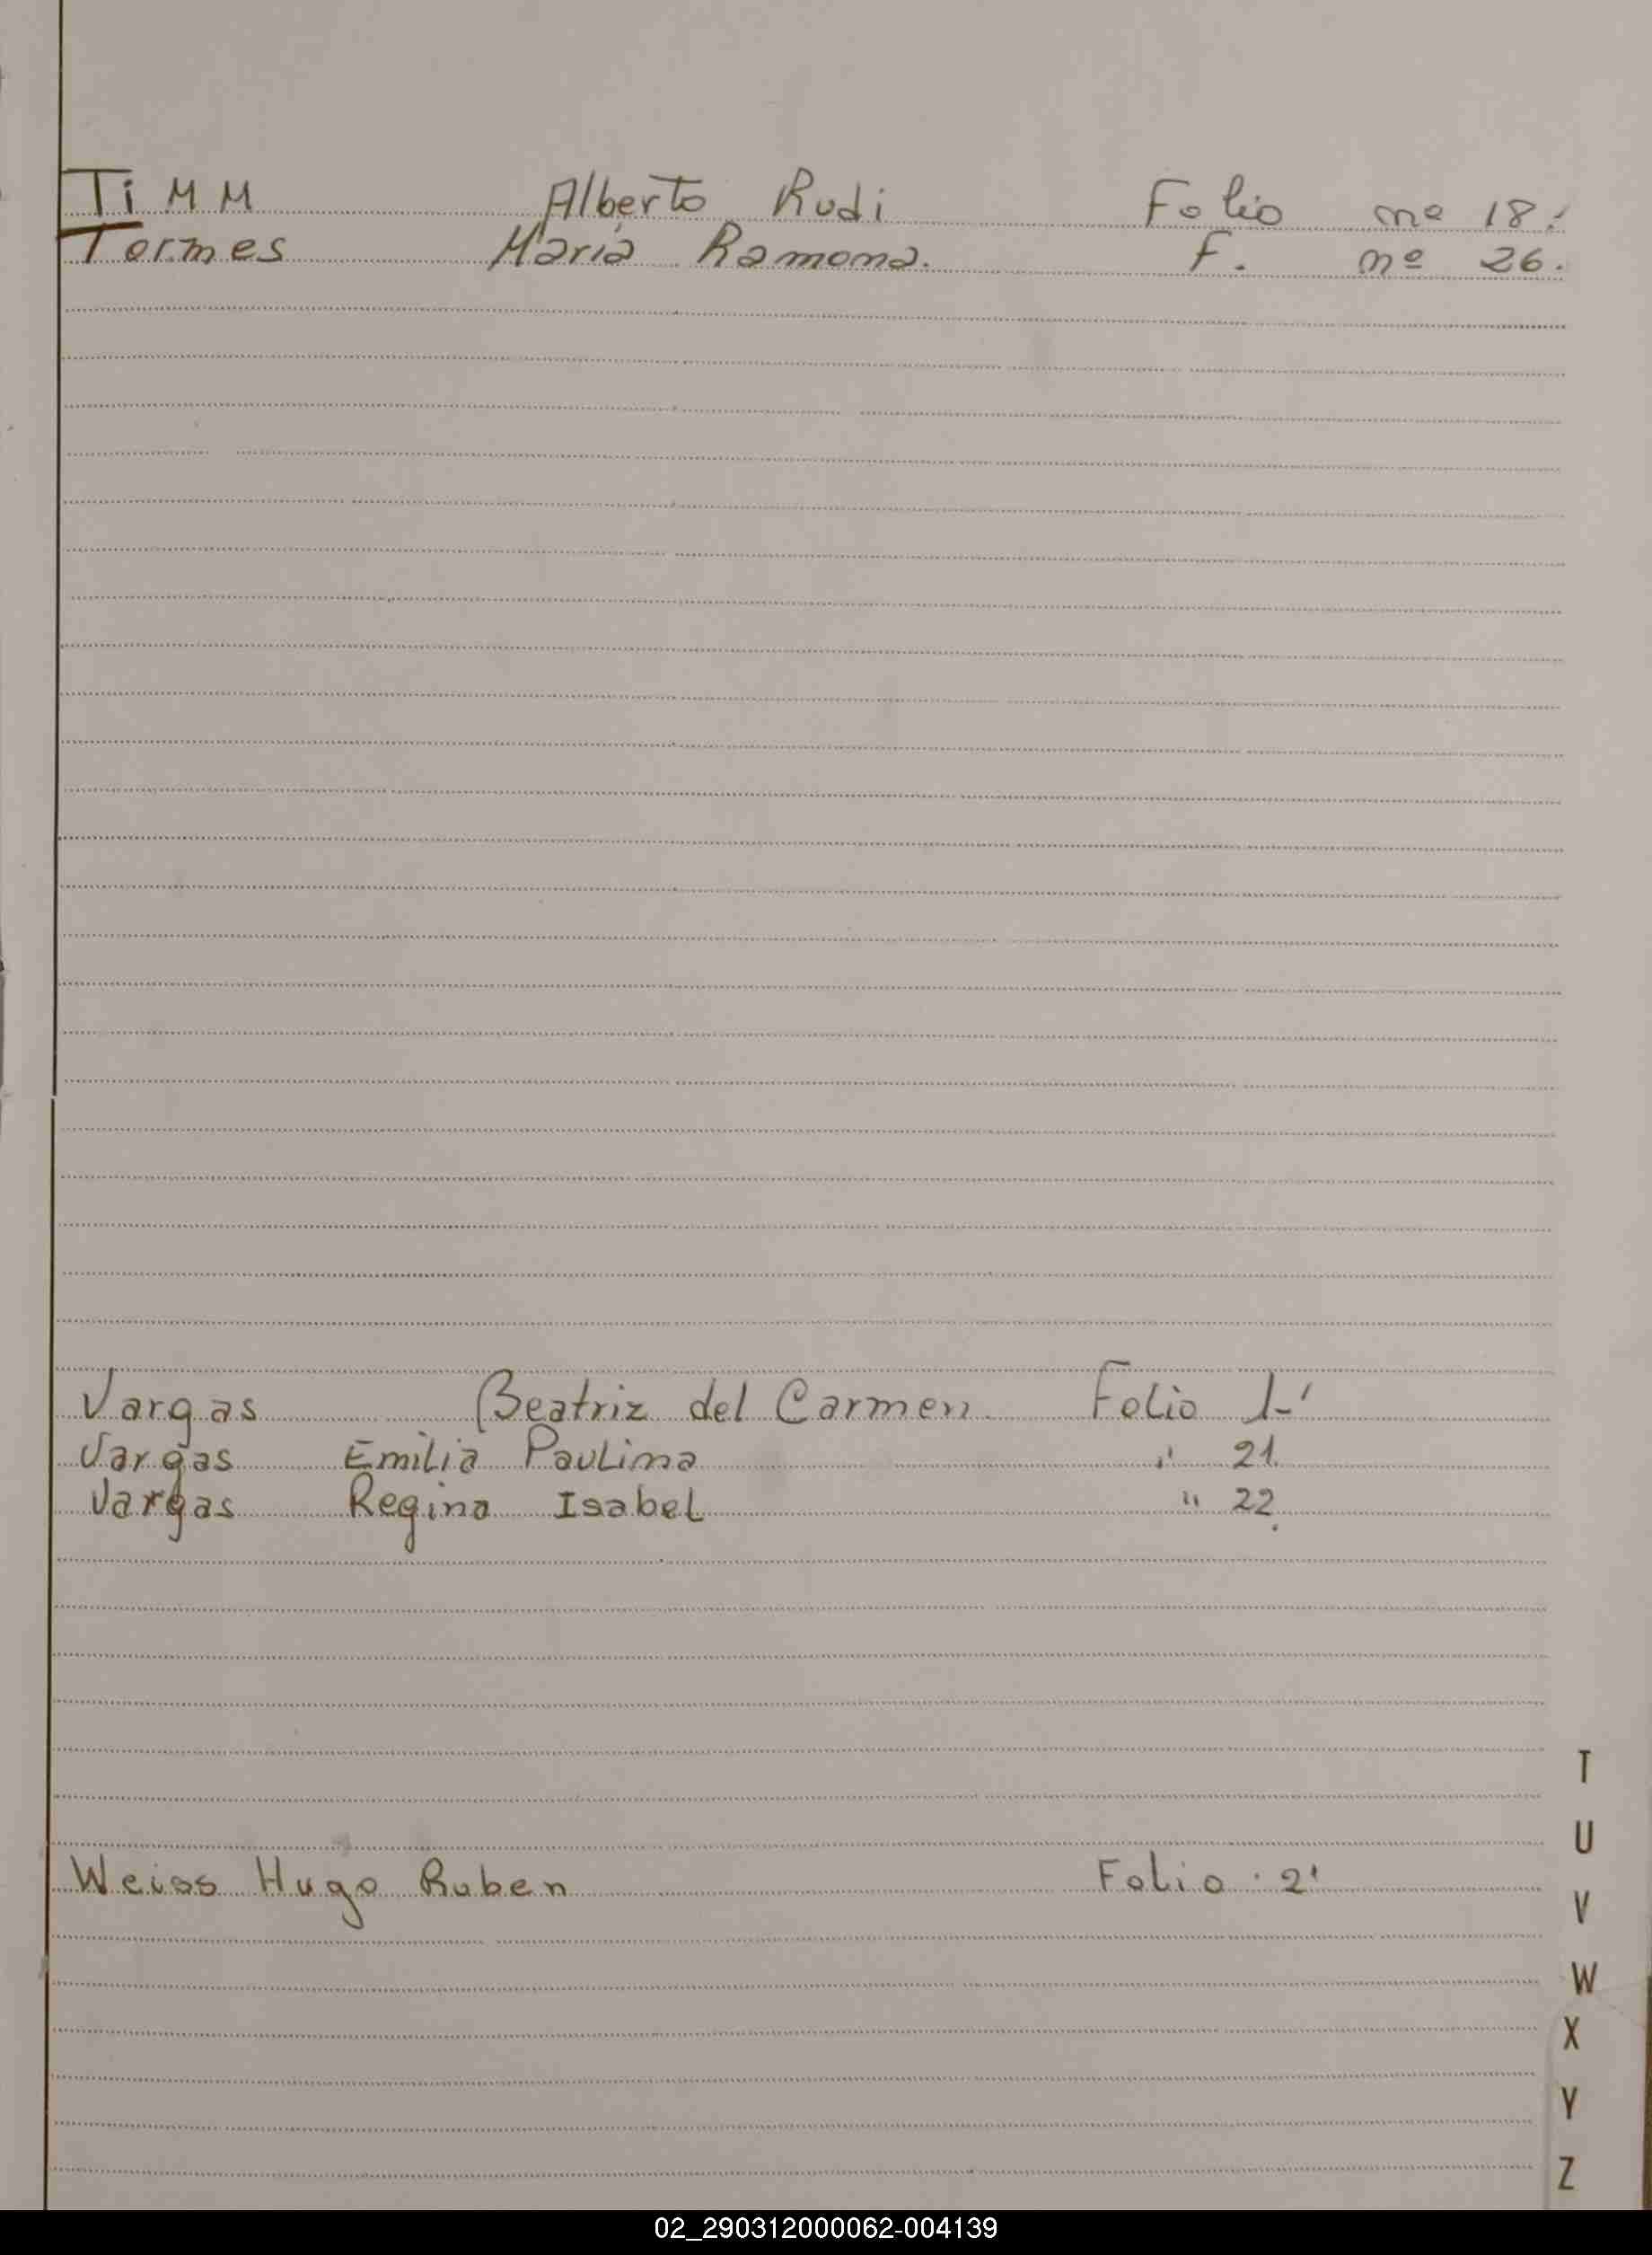 TiMM Alberto Rudi Folio nº 18.
Tormes María Ramona. F. nº 26.
Vargas Beatriz del Carmen Folio 1-
Vargas Emilia Paulina " 21.
Vargas Regina Isabel " 22.
Weiss Hugo Ruben Folio 2
T
U
V
W
X
Y
Z
02_290312000062-004139